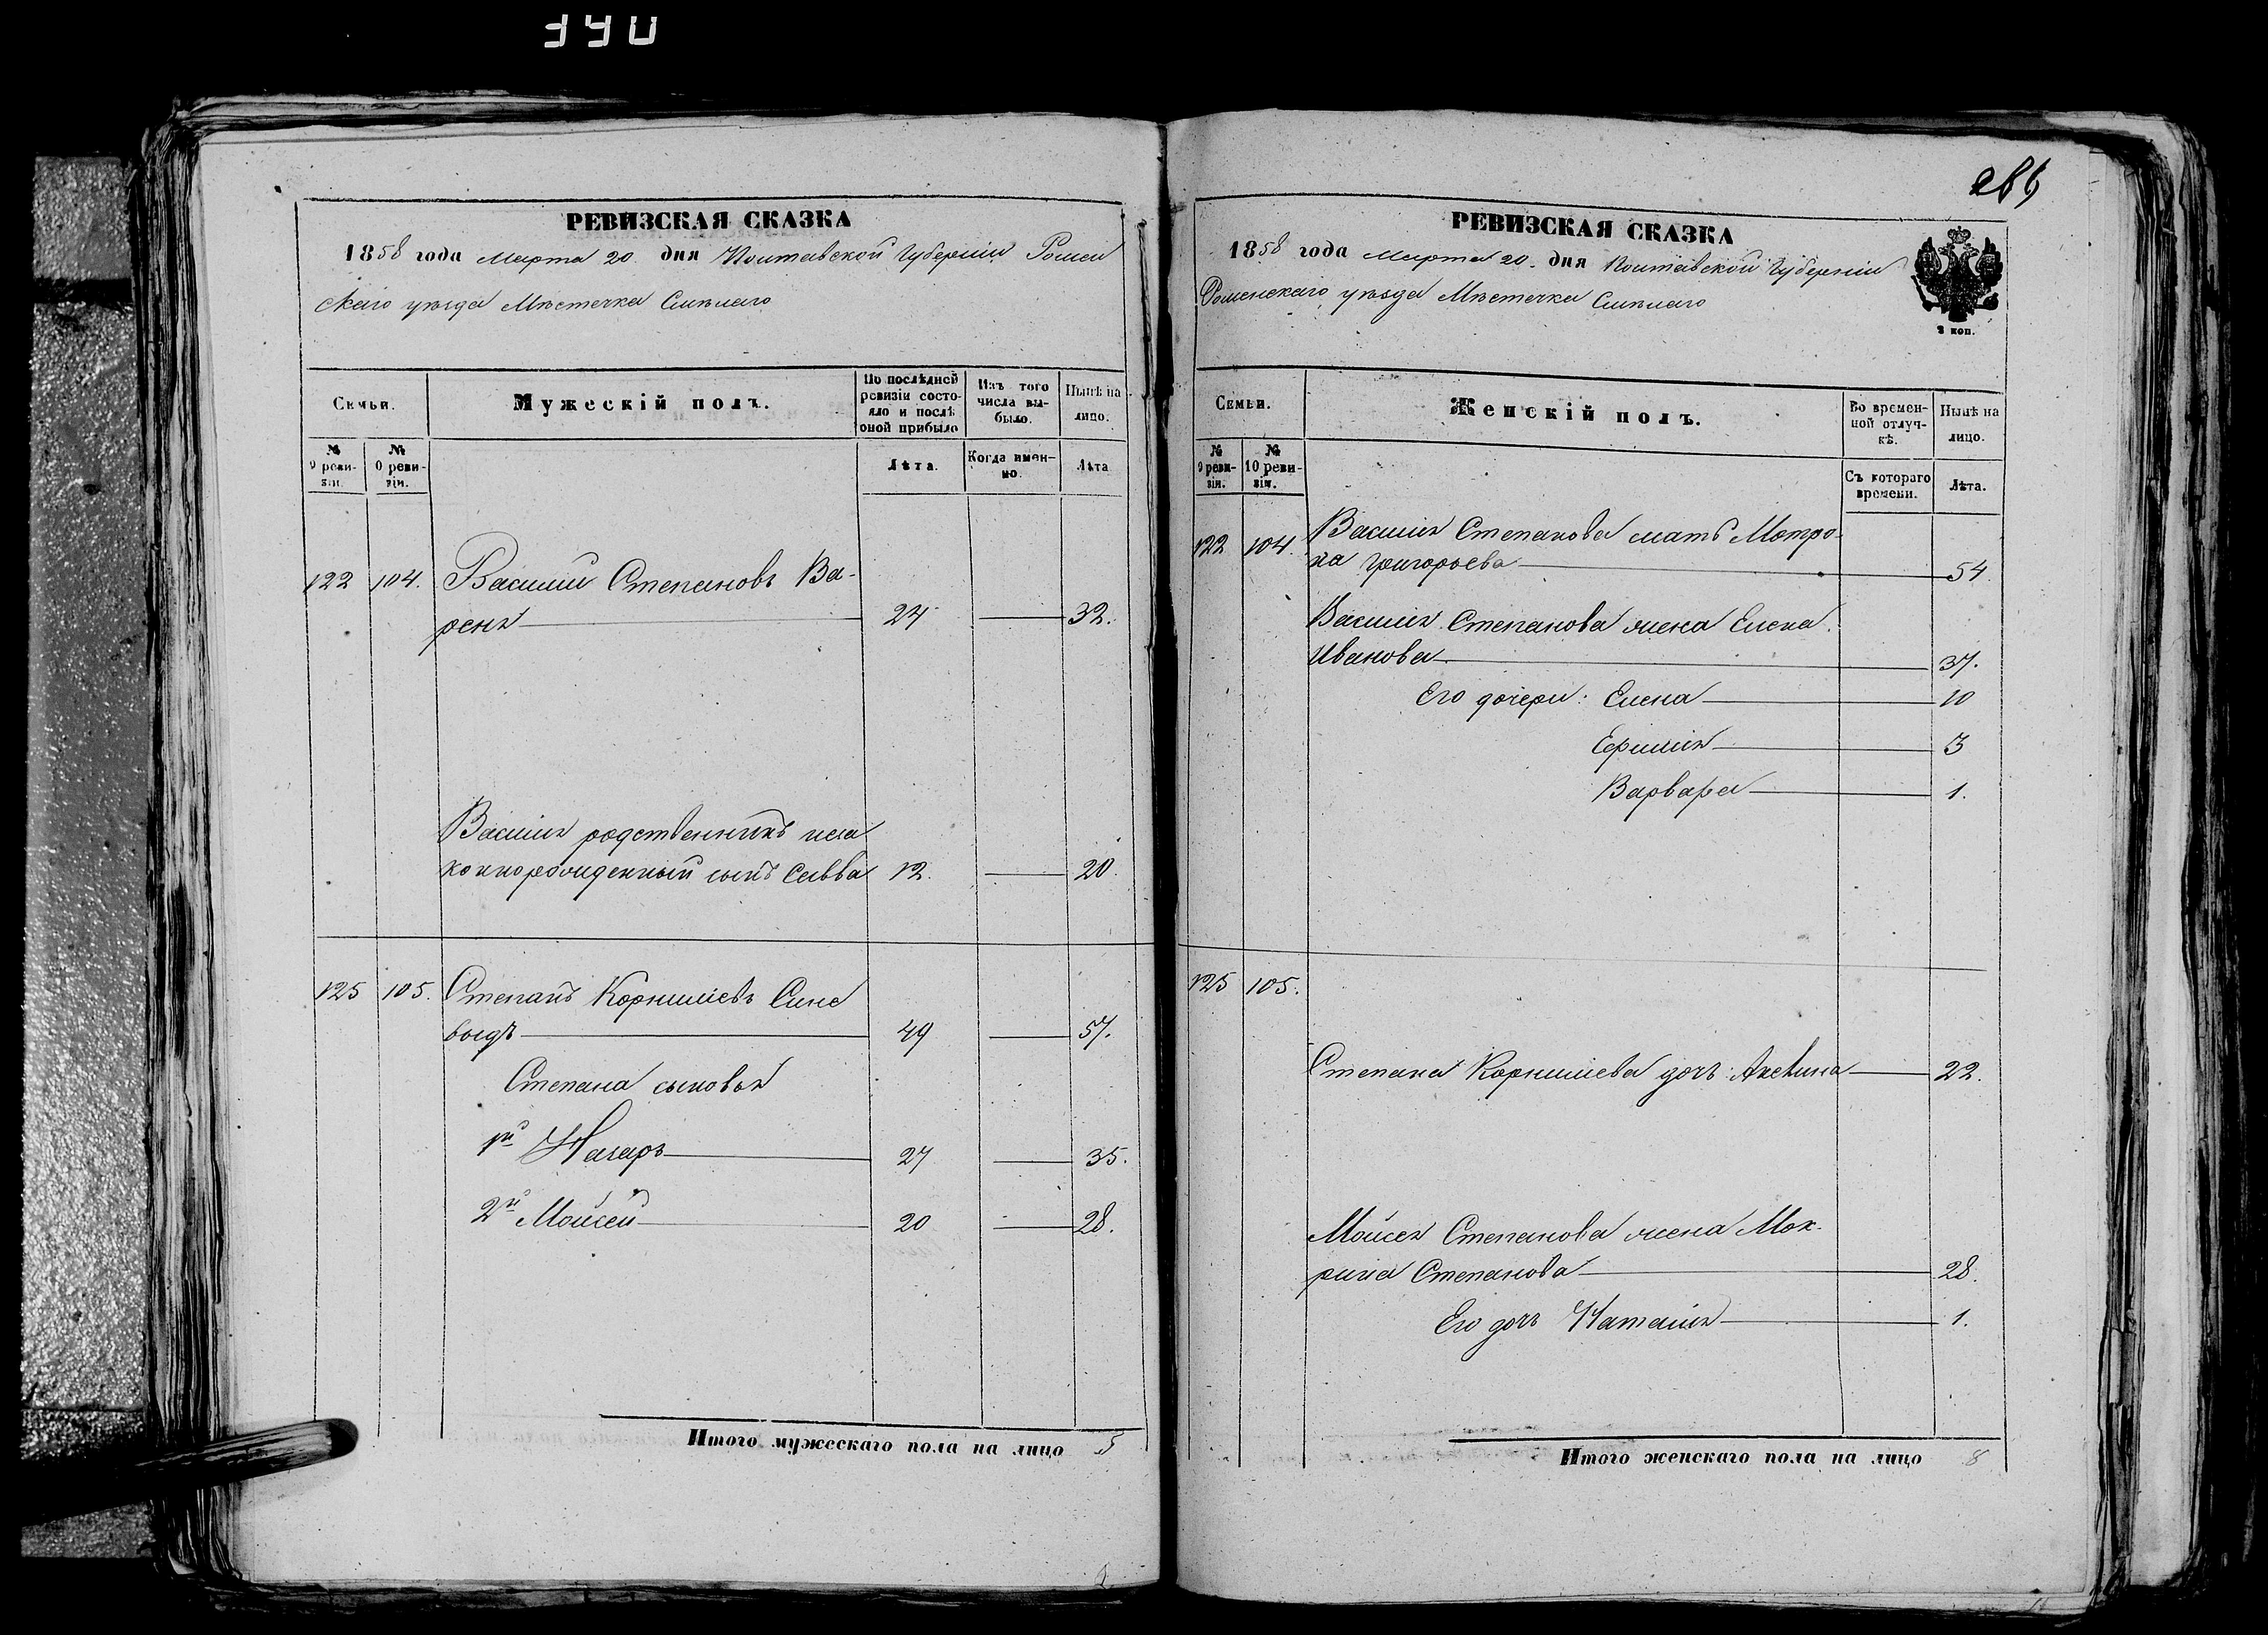 390
РЕВИЗСКАЯ СКАЗКА
1858 года Марта 20 дня Полтавской Губерніи Ромен
скаго уѣзда Мѣстечка Смѣлаго
Семьи.
Мужескій полъ.
По послѣдней ревизіи состояло и послѣ оной прибыло
Изъ того числа выбыло.
Нынѣ на лицо.
№ 9 ревизіи.
№ 10 ревизіи.
Лѣта.
Когда именно.
Лѣта
122 104. Василій Степановъ Ва-
реня 24 32.
Василія родственникъ неза
коннорожденный сынъ Савва 12. 20.
125 105. Степанъ Корниліевъ Сине
выдъ 49 57.
Степана сыновья
1й Назаръ 27 35.
2й Мойсей 20 28.
Итого мужескаго пола на лицо 5
РЕВИЗСКАЯ СКАЗКА
1858 года Марта 20. дня Полтавской Губерніи
Роменскаго уѣзда Мѣстечка Смѣлаго
2 коп.
Семьи.
Женскій полъ.
Во временной отлучкѣ.
Нынѣ на лицо.
№ 9 ревизіи.
№ 10 ревизіи.
Съ котораго времени.
Лѣта.
122 104. Василія Степанова мать Мотро-
на Григорьева 54.
Василія Степанова жена Елена
Иванова 37.
Его дочери: Елена 10
Ефимія 3
Варвара 1.
125 105.
Степана Корниліева дочь: Акелина 22.
Мойсея Степанова жена Мок-
рина Степанова 28.
Его дочь Наталія 1.
Итого женскаго пола на лицо 8